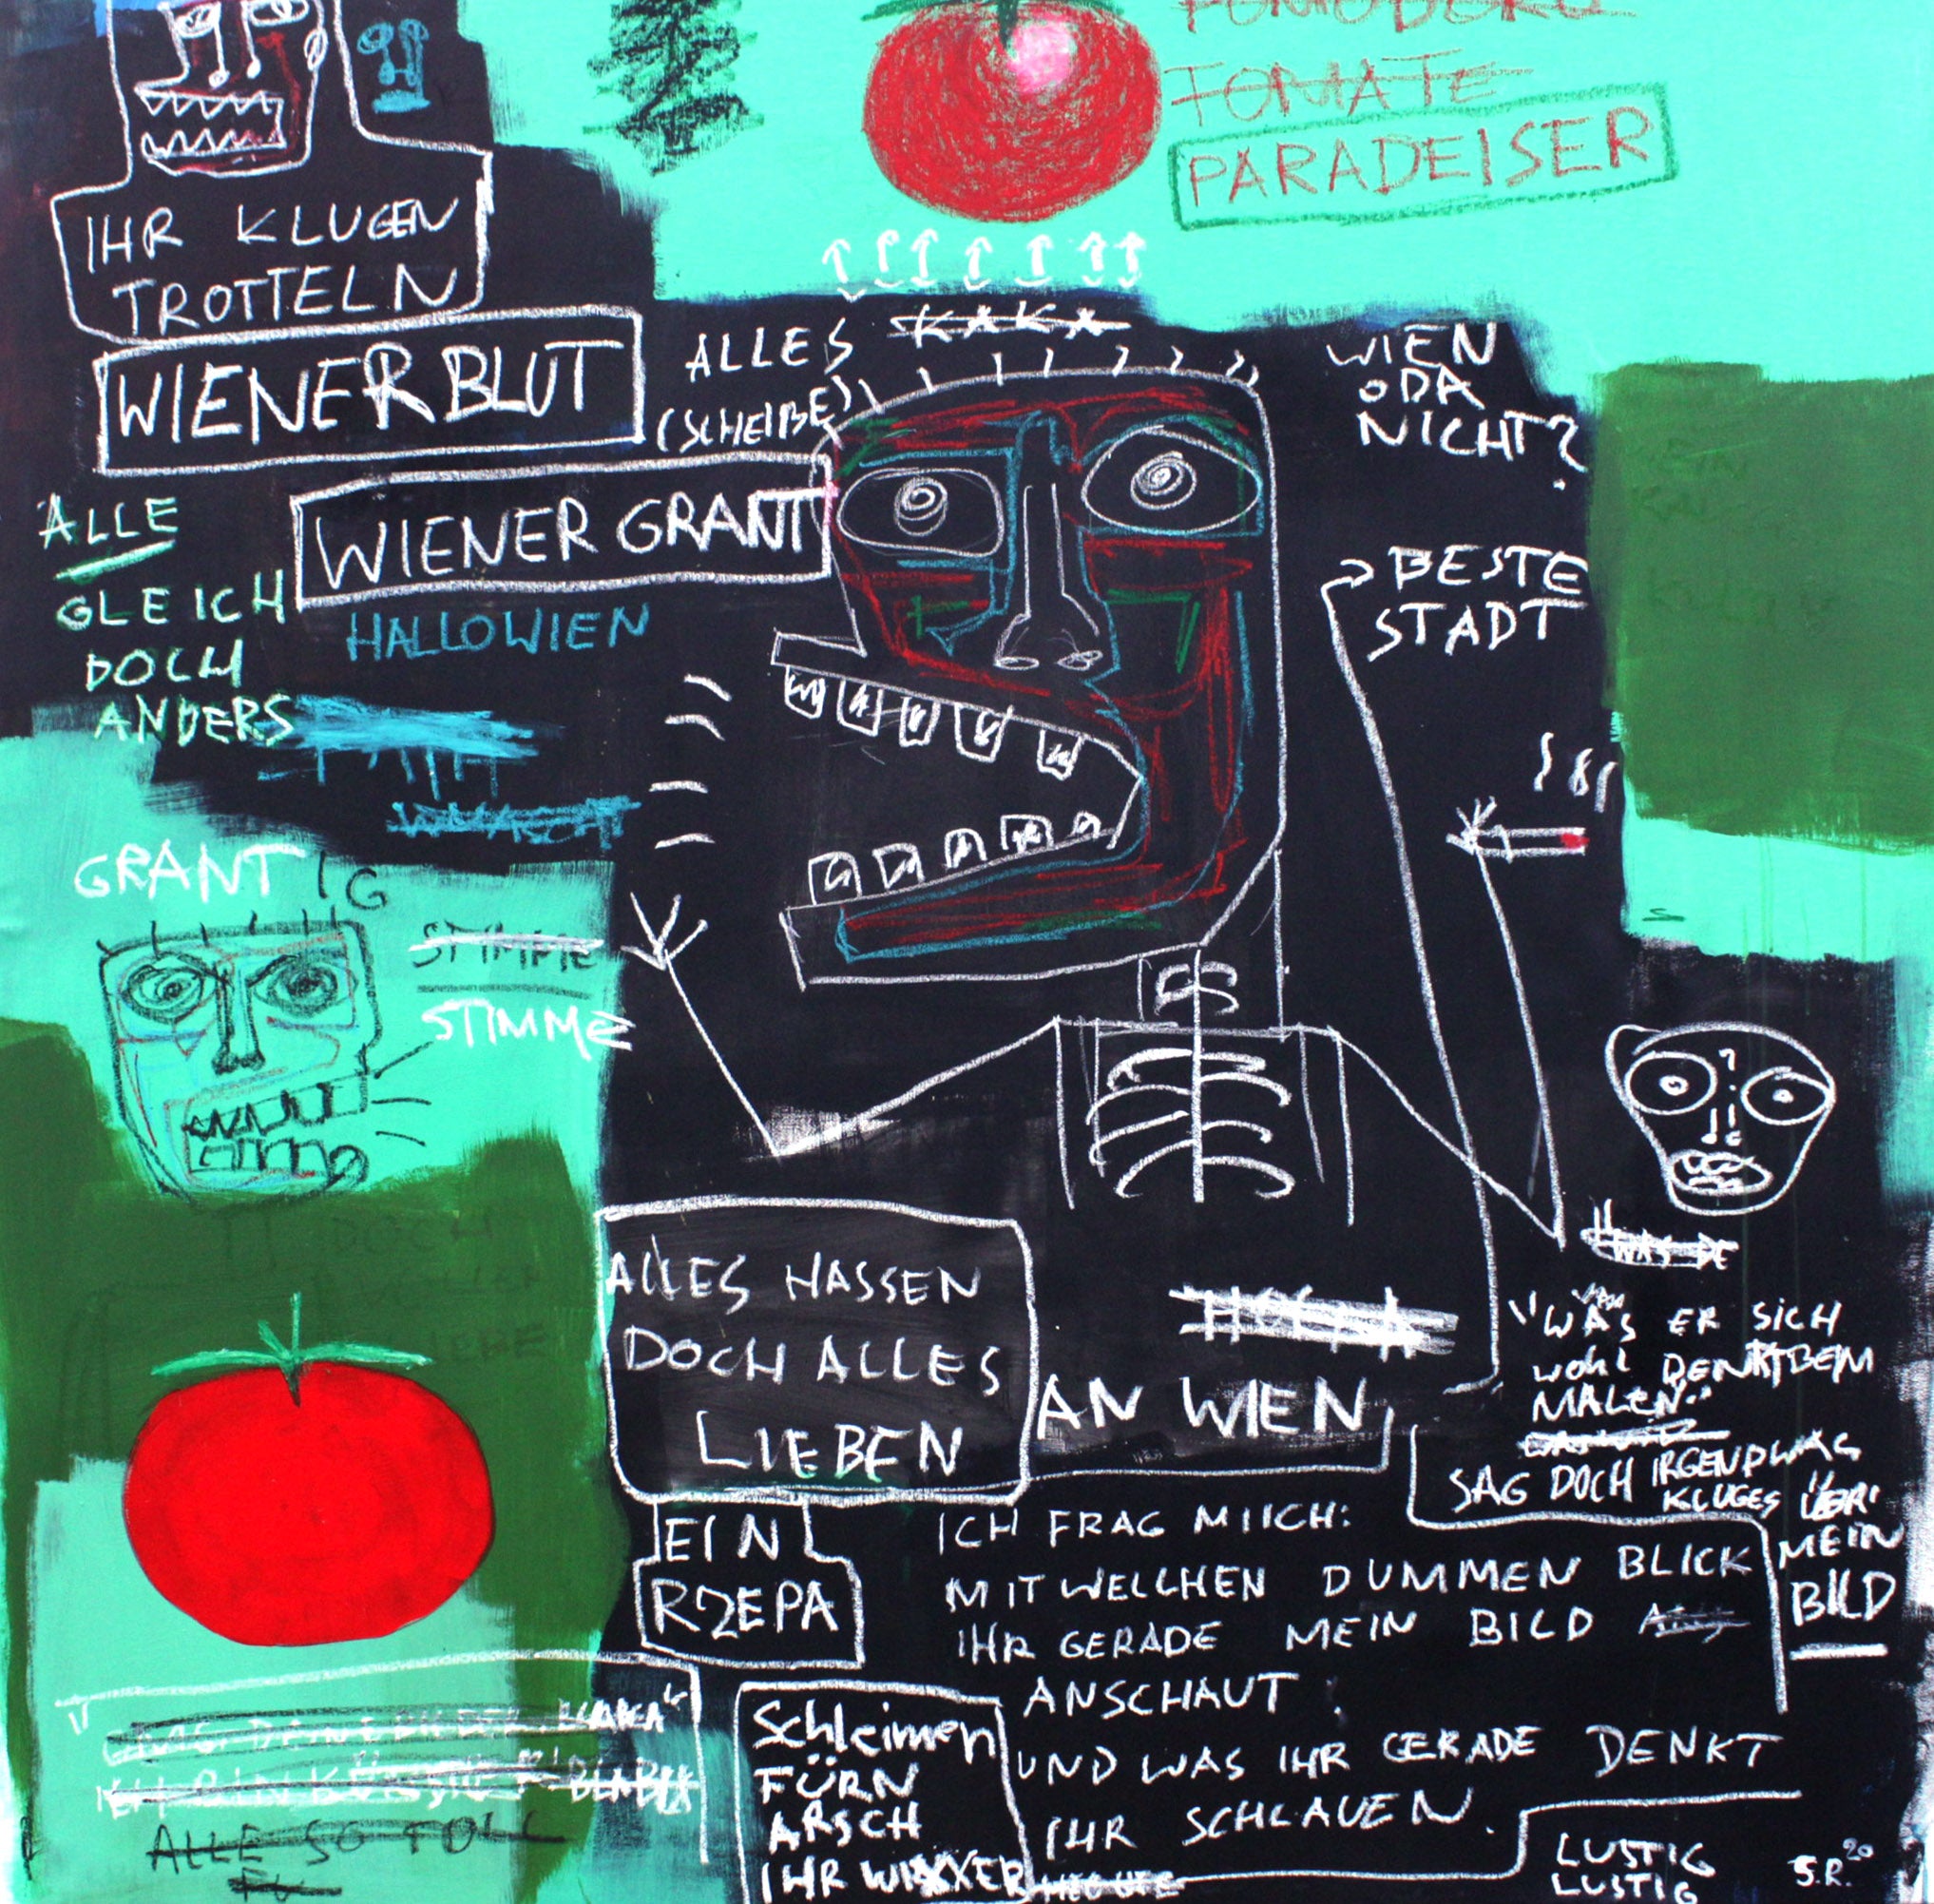 POMODORO
TOMATE
PARADEISER
IHR KLUGEN
TROTTELN
WIENER BLUT
ALLES
KAKA
(SCHEIßE)
WIEN
ODA
NICHT?
WIENER GRANT
ALLE
GLEICH
DOCH
ANDERS
HALLOWIEN
BESTE
STADT
GRANTIG
STIMME
STIMME
ALLES HASSEN
DOCH ALLES
LIEBEN
AN WIEN
WAS
"WAS ER SICH
WOHL DENKT BEIM
MALEN"
SAG DOCH IRGENDWAS
KLUGES ÜBER
MEIN
BILD
EIN
RZEPA
ICH FRAG MIICH:
MIT WELCHEN DUMMEN BLICK
IHR GERADE MEIN BILD
ANSCHAUT.
UND WAS IHR GERADE DENKT
IHR SCHLAUEN.
Schleimen
FÜRN
ARSCH
IHR WIXXER
ALLE SO TOLL
FU
LUSTIG
LUSTIG
S.R. 20